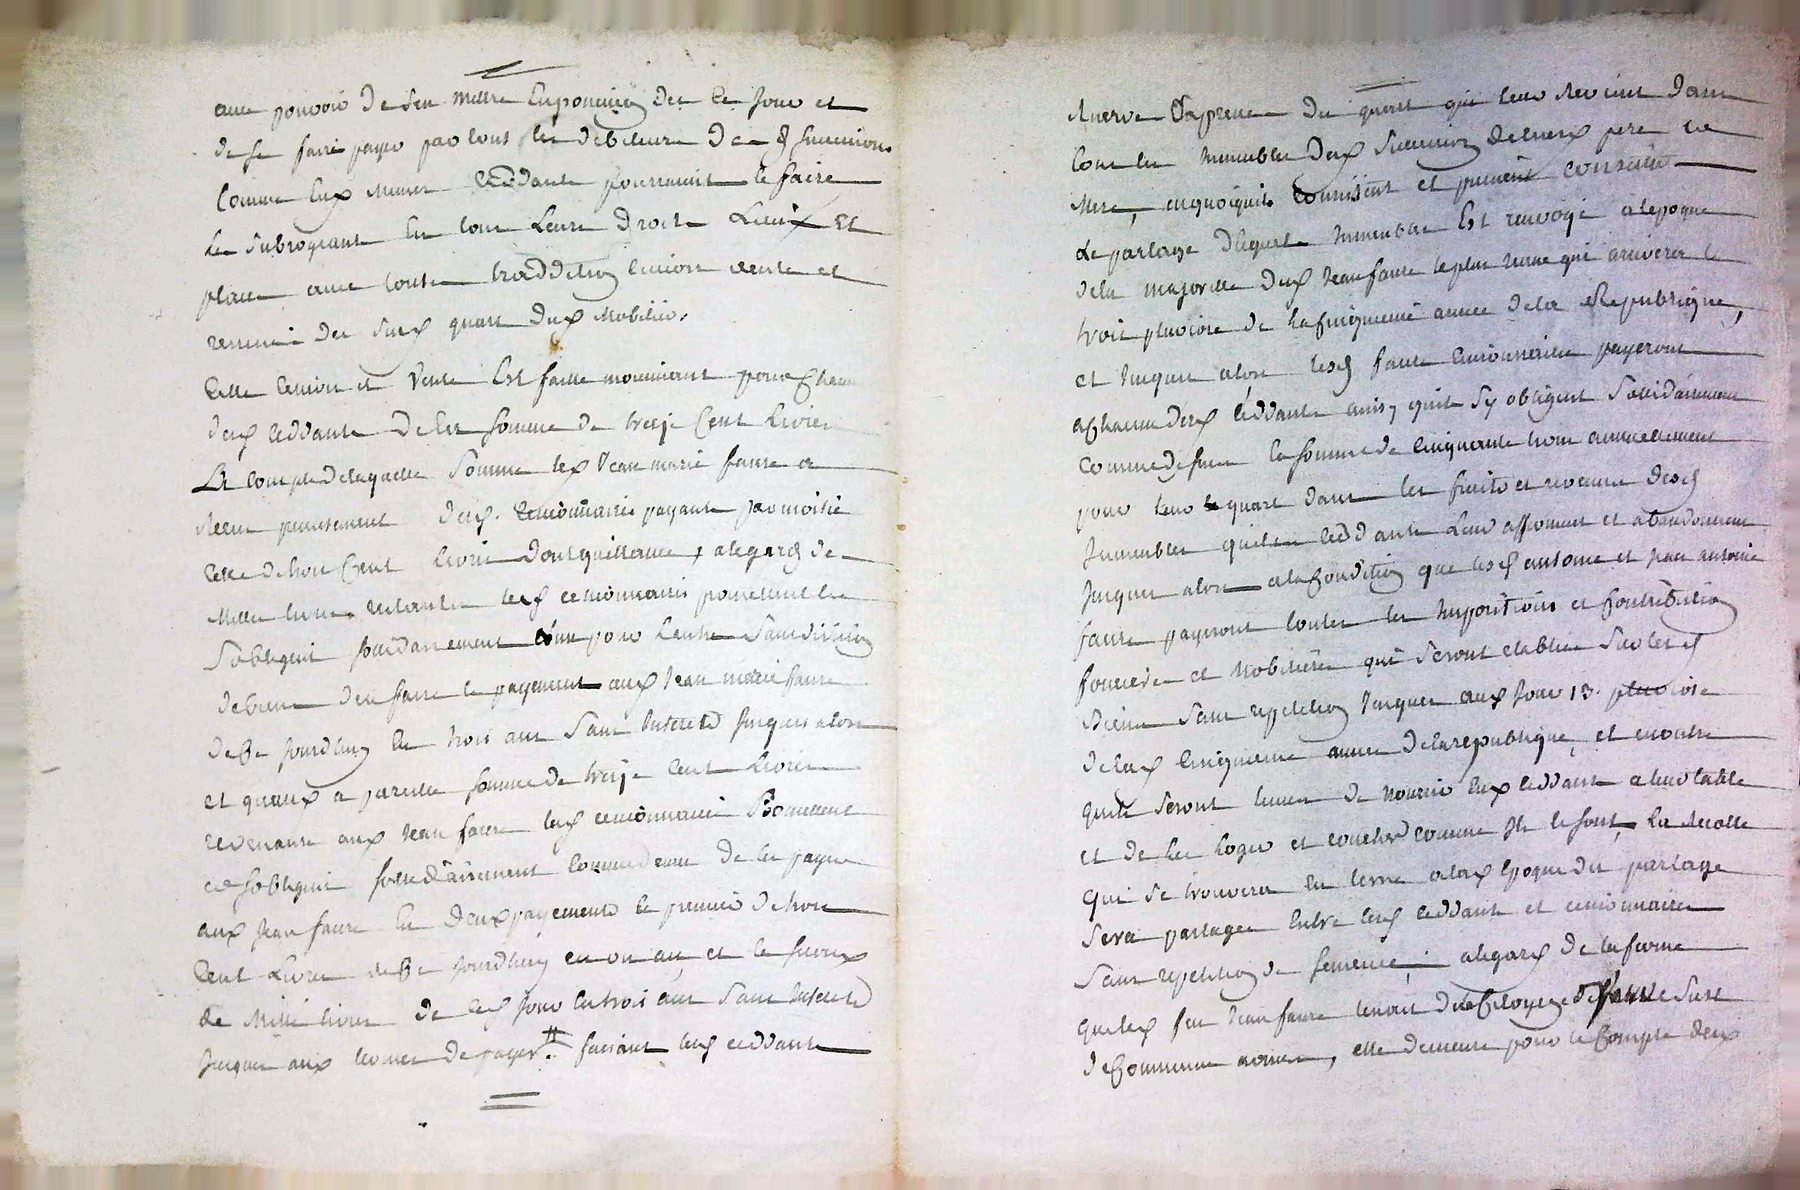 avec pouvoir de sen mettre en possession des ce jour et
de se faire payer par tous les debiteurs de
comme eux memes ceddants pourroient le faire
les subrogeant en tous leurs droits Lieux et
place avec toute traddition cession vente et
des quart dux mobilier.
Cette cession et vente Est faitte moienant pour chaqun
deux ceddants de la somme de treize Cent Livres
a compte de laquelle somme lex Jean marie faure a
Receu presentement deux cessionnaires payants par moitié
celle de trois Cent livres dont quittance, a legard de
Mille livres restantes cessionnaires promettent et
sobligent sollidairement l'un pour l'autre sans division
den faire le payement aux Jean marie faure
de ce jourdhuy en trois ans sans Interets Jusques alors
et quand a pareille somme de treize cent Livres
revenants aux Jean faure cessionnaires Promettent
et sobligent sollidairement comme dessus de la payer
aux Jean faure en deux payements le premier de trois
Cent Livres de ce jourdhuy en un an et le surplus
de Mille livres de jour en trois ans sans Interets
Jusques aux termes de payer. faisant ceddants
Reserve Expresse du quart qui leur Revient dans
tous les Immeubles dux Succession de leurs pere et
Mere, en quoi qu'ils consistent et puissent consister
Le partage desquels Immeubles Est renvoyé a lepoque
de la majorité dux Jean faure le plus Jeune qui arrivera le
trois pluviose de la cinquieme année de la Republique,
et Jusques alors faure cessionnaires payeront
a chaqun deux ceddants ainsy quils sy obligent sollidairement
comme dessus la somme de cinquante trois annuellement
pour leur quart dans les fruits et revenus
Immeubles quils ceddants leur afferment et abandonnent
Jusques alors a la Condition que antoine et Jean antoine
faure payeront toutes les Impositions et Contributions
foncieres et mobilieres qui seront etablies sur
Biens sans repetition Jusques aux Jour 13 pluviose
de lax cinquieme année de la republique, et en outre
quils seront tenus de nourrir eux ceddants a leur table
et de les loger et coucher comme Ils le font, La Recolte
qui se trouvera en terre a lax Epoque du partage
sera partagée Entre ceddants et cessionnaires
sans repetition de semences, a legard de la ferme
quelex feu Jean faure tenoit du Citoyen
de Commune, elle demeure pour le Compte deux